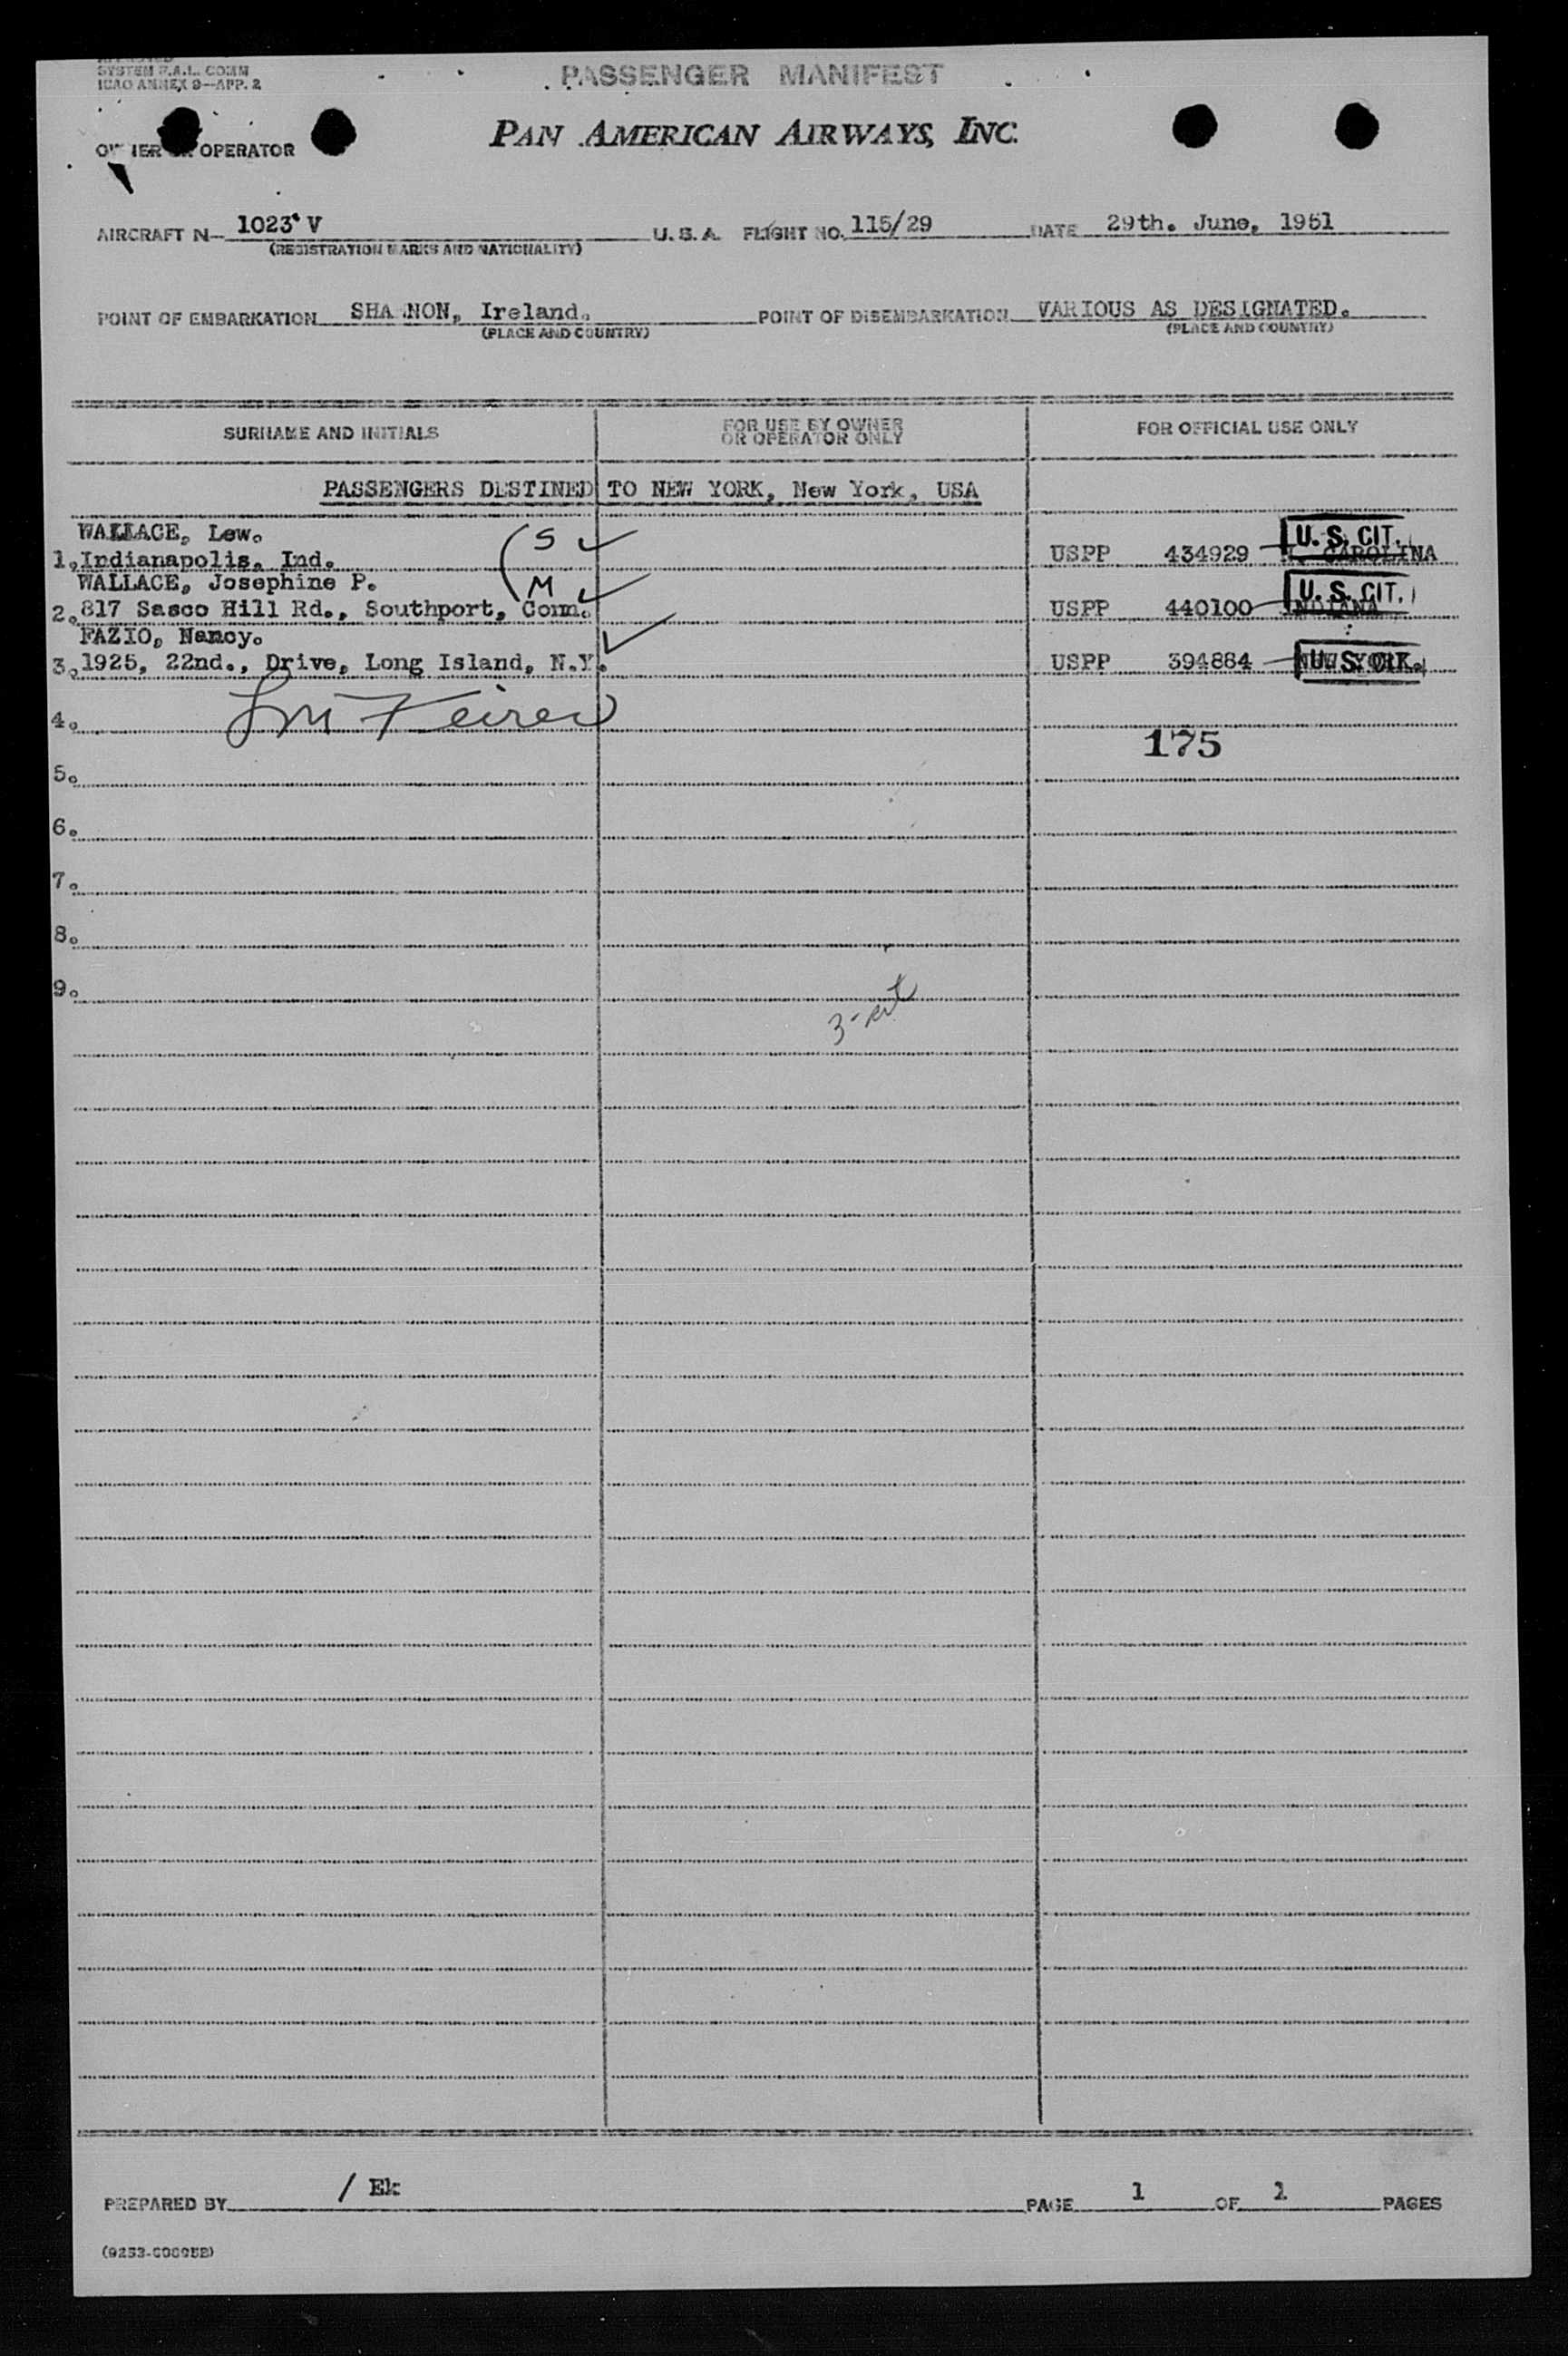 SYSTEM F.A.L. COMM
ICAO ANNEX 9—APP. 2
PASSENGER MANIFEST
PAN AMERICAN AIRWAYS, INC.
OPERATOR
AIRCRAFT N- 1023 V U. S. A. FLIGHT NO. 115/29 DATE 29th. June, 1951
(REGISTRATION MARKS AND NATIONALITY)
POINT OF EMBARKATION SHA NON, Ireland. POINT OF DISEMBARKATION VARIOUS AS DESIGNATED.
(PLACE AND COUNTRY) (PLACE AND COUNTRY)
SURNAME AND INITIALS FOR USE BY OWNER OR OPERATOR ONLY FOR OFFICIAL USE ONLY
PASSENGERS DESTINED TO NEW YORK, New York, USA
WALLACE, Lew. S U. S. CIT.
1. Indianapolis, Ind. USPP 434929 CAROLINA
WALLACE, Josephine P. M U. S. CIT.
2. 817 Sasco Hill Rd., Southport, Conn. USPP 440100 INDIANA
FAZIO, Nancy.
3. 1925, 22nd., Drive, Long Island, N.Y. USPP 394884 NEW YORK. U. S. CIT.
4.
175
5.
6.
7.
8.
9.
PREPARED BY / Ek PAGE 1 OF 1 PAGES